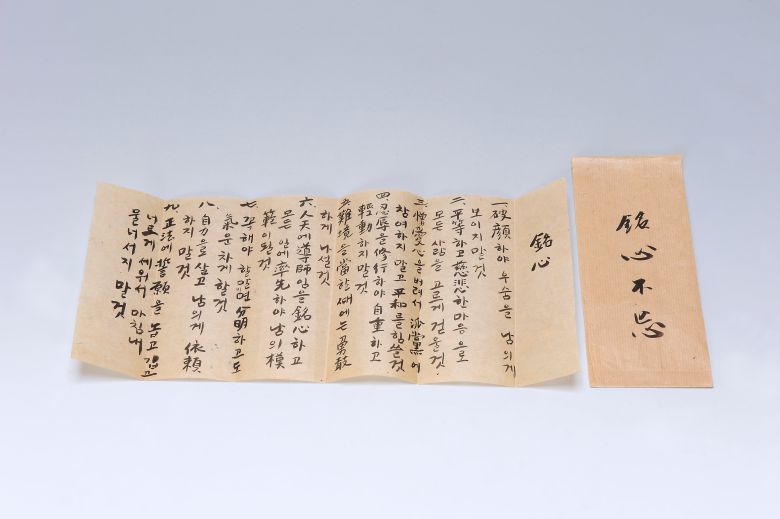 銘心
一 破顔하야 우슴을 남의게
보이지 말 것
二. 平等하고 慈悲한 마음으로
모든 사람을 고르게 건을 것
三. 憎愛心을 버려서 派黨에
참여하지 말고 平和를 힘쓸 것
四. 忍辱을 修行하야 自重하고
輕動하지 말 것
五. 難境을 當할 때에는 勇敢
하게 나설 것
六. 人天에 導師임을 銘心하고
모든 일에 率先하야 남의 模
範이 될 것
七. 꼭 해야 할 말면 分明하고도
氣운차게 할 것
八. 自力으로 살고 남의게 依賴
하지 말 것
九. 正法에 誓願을 놉고 깁고
너르게 세워서 마침내
물너서지 말 것
銘心不忘